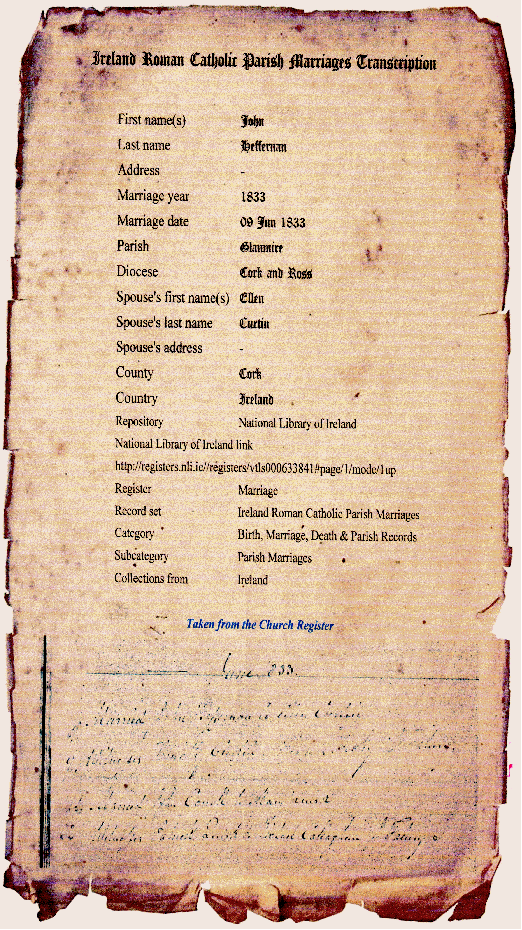 Ireland Roman Catholic Parish Marriages Transcription
First name(s) John
Last name Heffernan
Address -
Marriage year 1833
Marriage date 09 Jun 1833
Parish Glanmire
Diocese Cork and Ross
Spouse's first name(s) Ellen
Spouse's last name Curtin
Spouse's address -
County Cork
Country Ireland
Repository National Library of Ireland
National Library of Ireland link
http://registers.nli.ie//registers/vtls000633841#page/1/mode/1up
Register Marriage
Record set Ireland Roman Catholic Parish Marriages
Category Birth, Marriage, Death & Parish Records
Subcategory Parish Marriages
Collections from Ireland
Taken from the Church Register
June 833
Married John